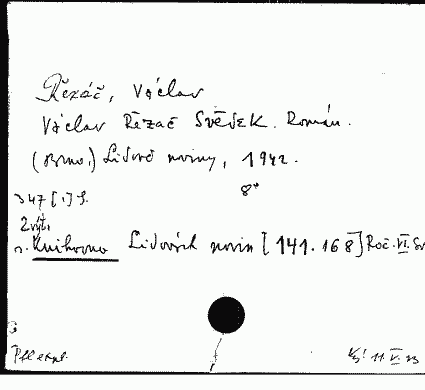 Řezáč, Václav
Václav Řezáč Svědek. Román.
(Brno,) Lidové noviny, 1942.
8°
347 [1] s.
2 výt.
Knihovna Lidových novin [141.168] Roč. VI. Sv
11 VI